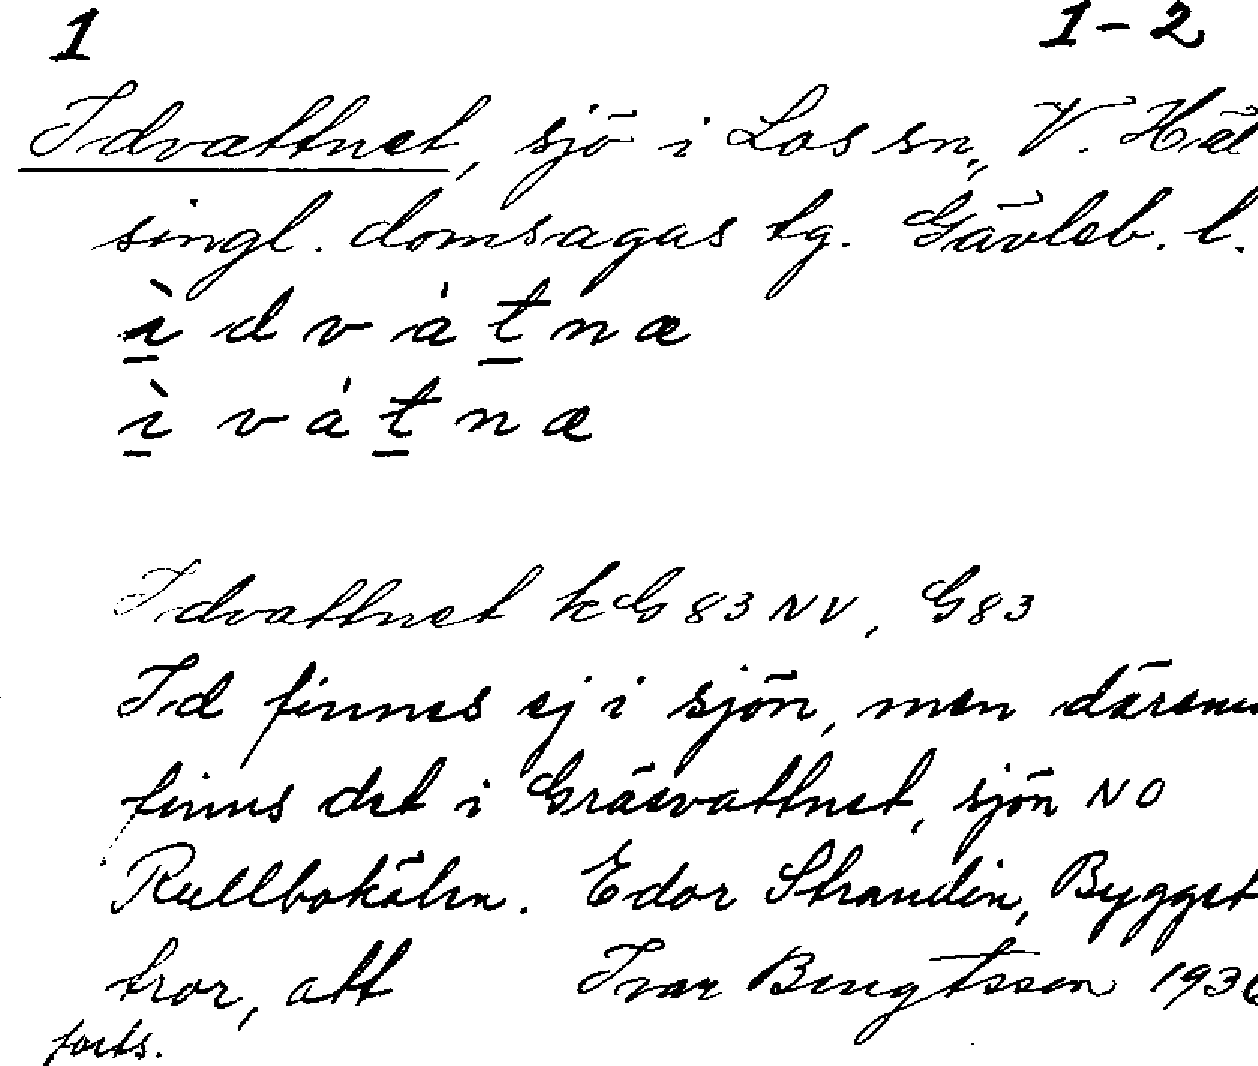 1 1-2
Idvattnet, sjö i Los sn, V. Häl
singl. domsagas tg. Gävleb. l.
ì d v á t n æ
ì v á t n æ
Idvattnet kG 83 NV, G83
Id finnes ej i sjön, men därem
finns det i Gräsvattnet, sjön NO
Rullbokåln. Edor Strandin, Bygget
tror, att Ivar Bengtsson 193
forts.